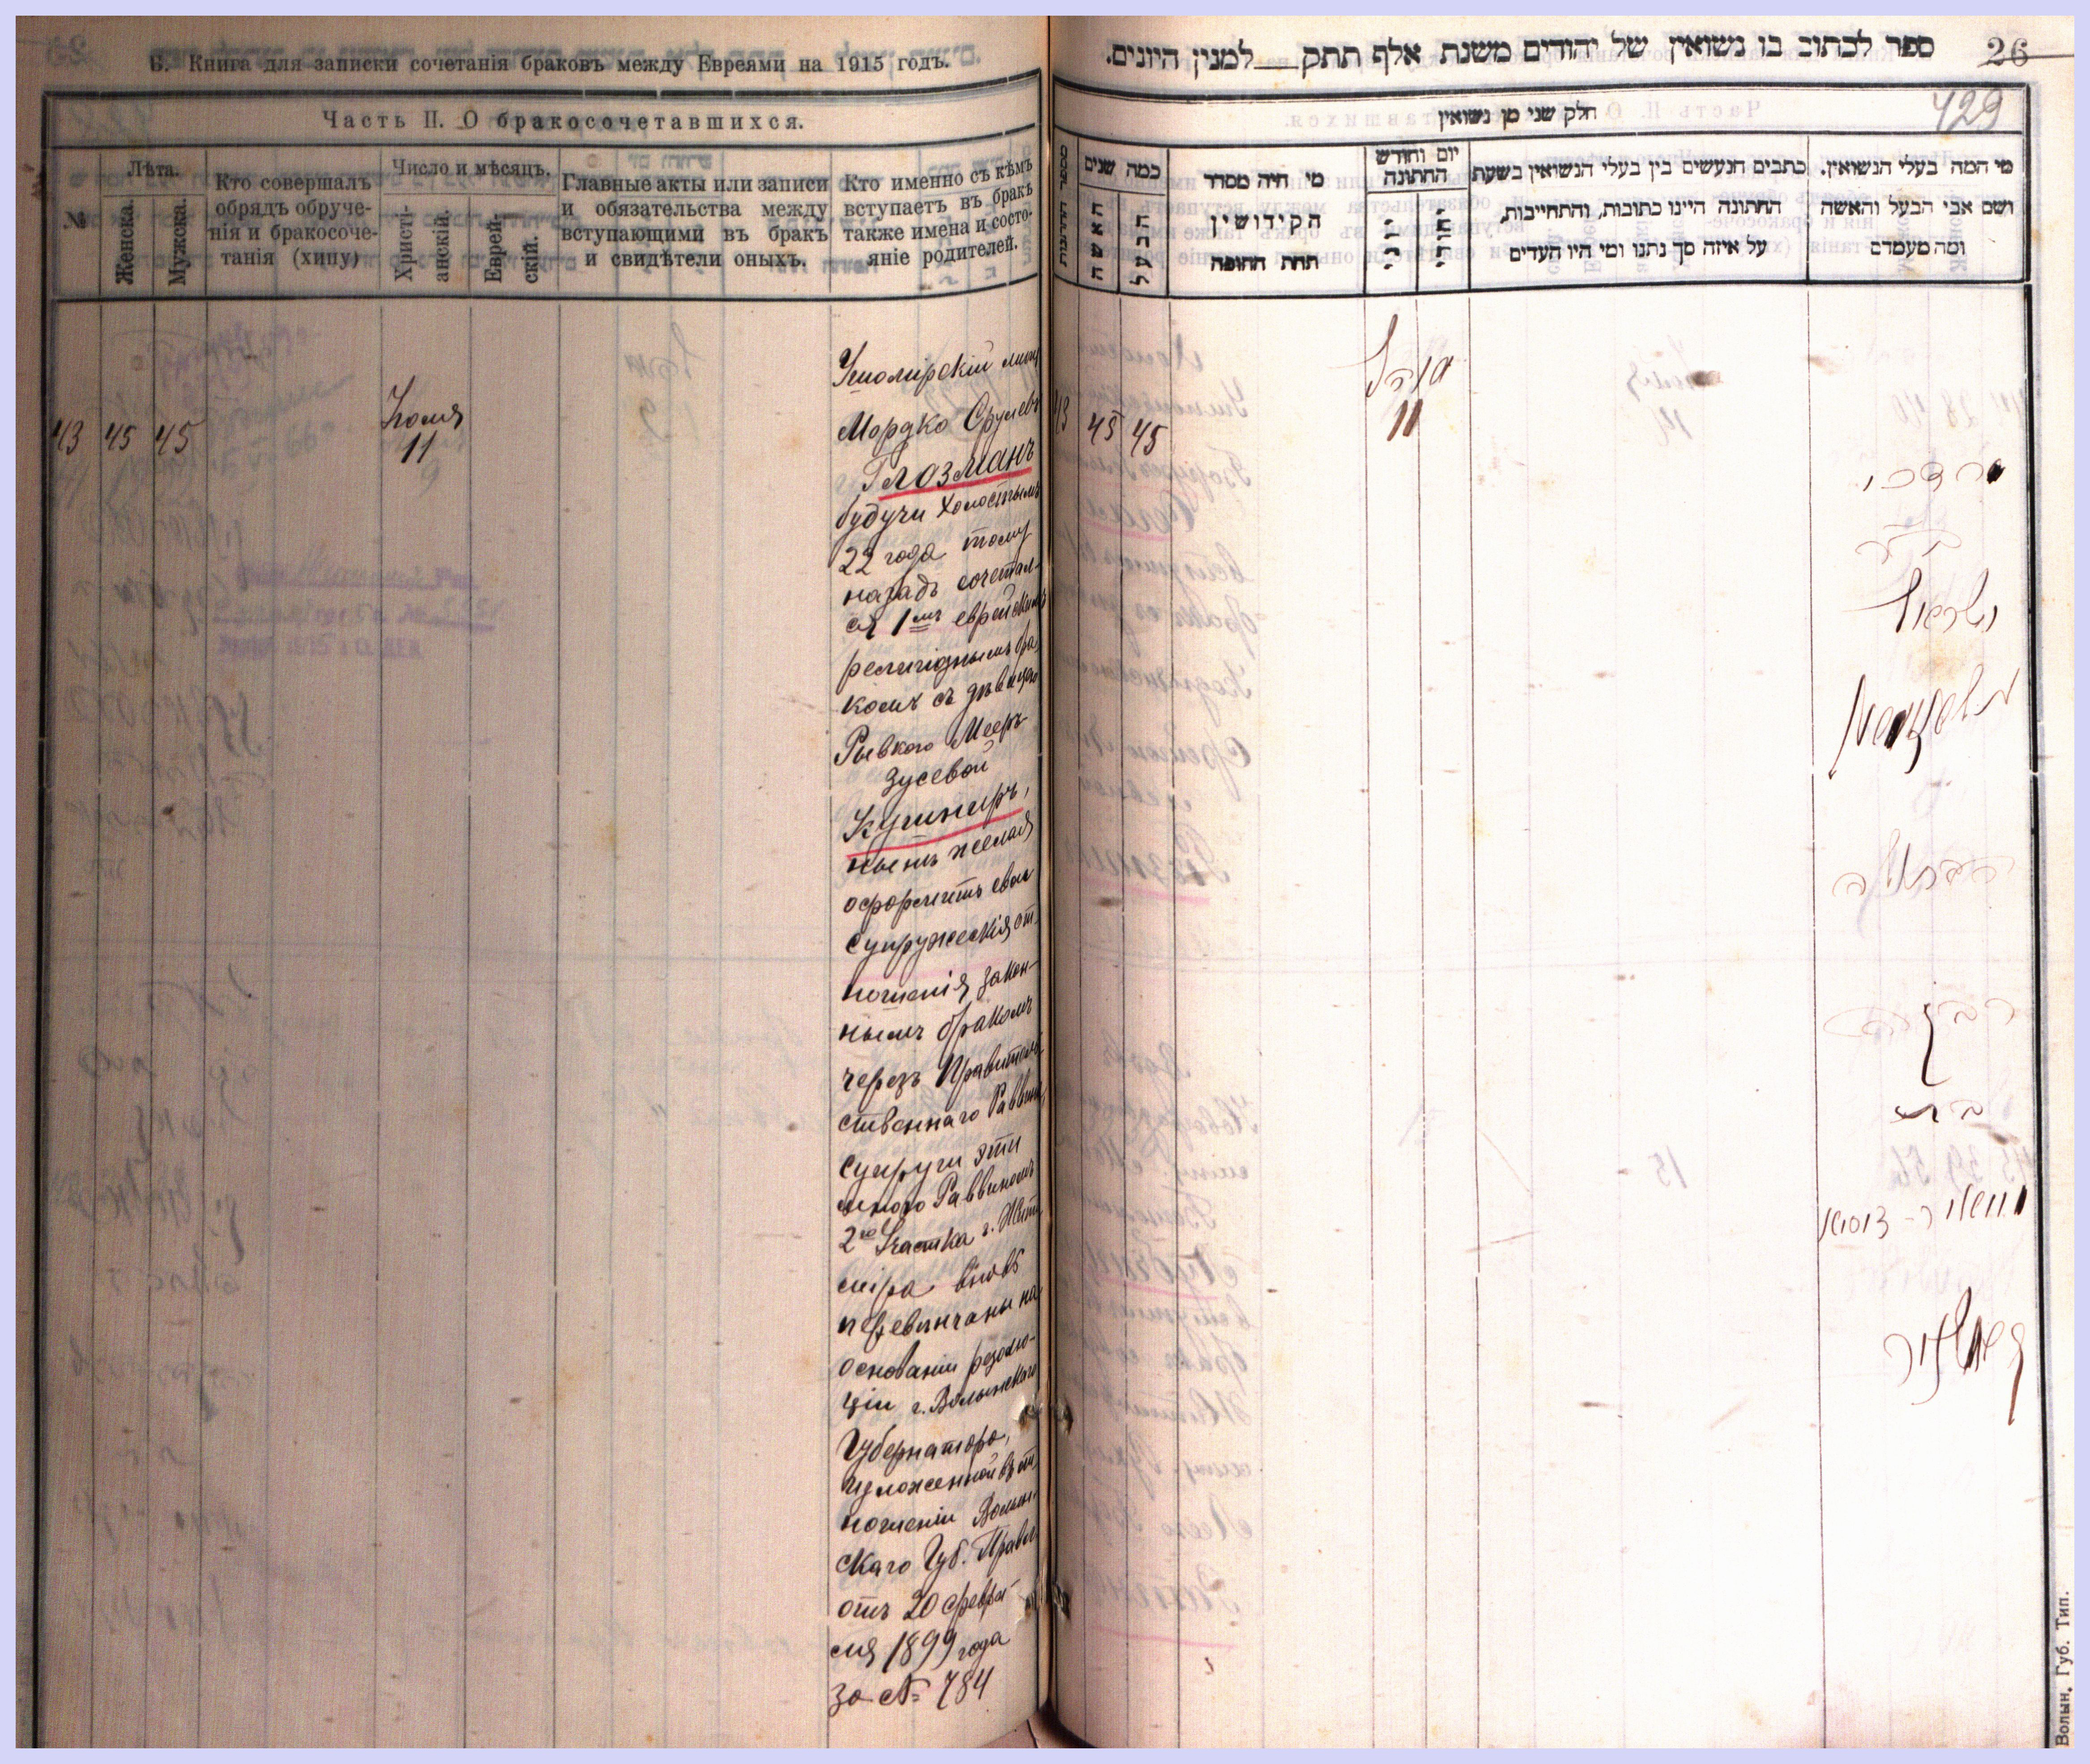 Б. Книга для записки сочетанія браковъ между Евреями на 1915 годъ.
Часть II. О бракосочетавшихся.
№
Лѣта.
Женска.
Мужска.
Кто совершалъ
обрядъ обруче-
нія и бракосоче-
танія (хипу)
Число и мѣсяцъ.
Христі-
анскій.
Еврей-
скій.
Главные акты или записи
и обязательства между
вступающими въ бракъ
и свидѣтели оныхъ.
Кто именно съ кѣмъ
вступаетъ въ бракъ
также имена и состо-
яніе родителей.
43 45 45
Іюля
11
Мордко Срулевъ
Глозманъ
будучи холостымъ
22 года тому
назадъ сочетал-
ся 1мъ еврейскимъ
религіознымъ бра
комъ съ дѣвицею
Рывкою Меер-
Зусевой
Кушниръ,
нынѣ желая
оформить свои
супружескія от
ношенія закон-
нымъ бракомъ
черезъ Правитель
ственнаго Раввина,
супруги эти
мною Раввиномъ
2го Участка г. Жит
міра вновь
перевѣнчаны на
основаніи резолю-
ціи г. Волынскаго
Губернатора,
изложенной въ от
ношеніи Волын
скаго Губ. Правл
отъ 20 февра
ля 1899 года
за № 784
ספר לכתוב בו נשואין של יהודים משנת אלף תתק למנין היונים.
26
429
חלק שני מן נשואין
מספר החתונות
כמה שנים
האשה
הבעל
מי היה מסדר
הקידושין
תחת החופה
יום וחודש
החתונה
יוני
יהודי
כתבים הנעשים בין בעלי הנשואין בשעת
החתונה היינו כתובות, והתחייבות,
על איזה סך נתנו ומי היו העדים
מי המה בעלי הנשואין.
ושם אבי הבעל והאשה
ומה מעמדם
43 45 45
יולי
11
מרדכי
ישראל
גלאזמאן
בת
מאיר-זוסיא
קושניר
Волын. Губ. Тип.